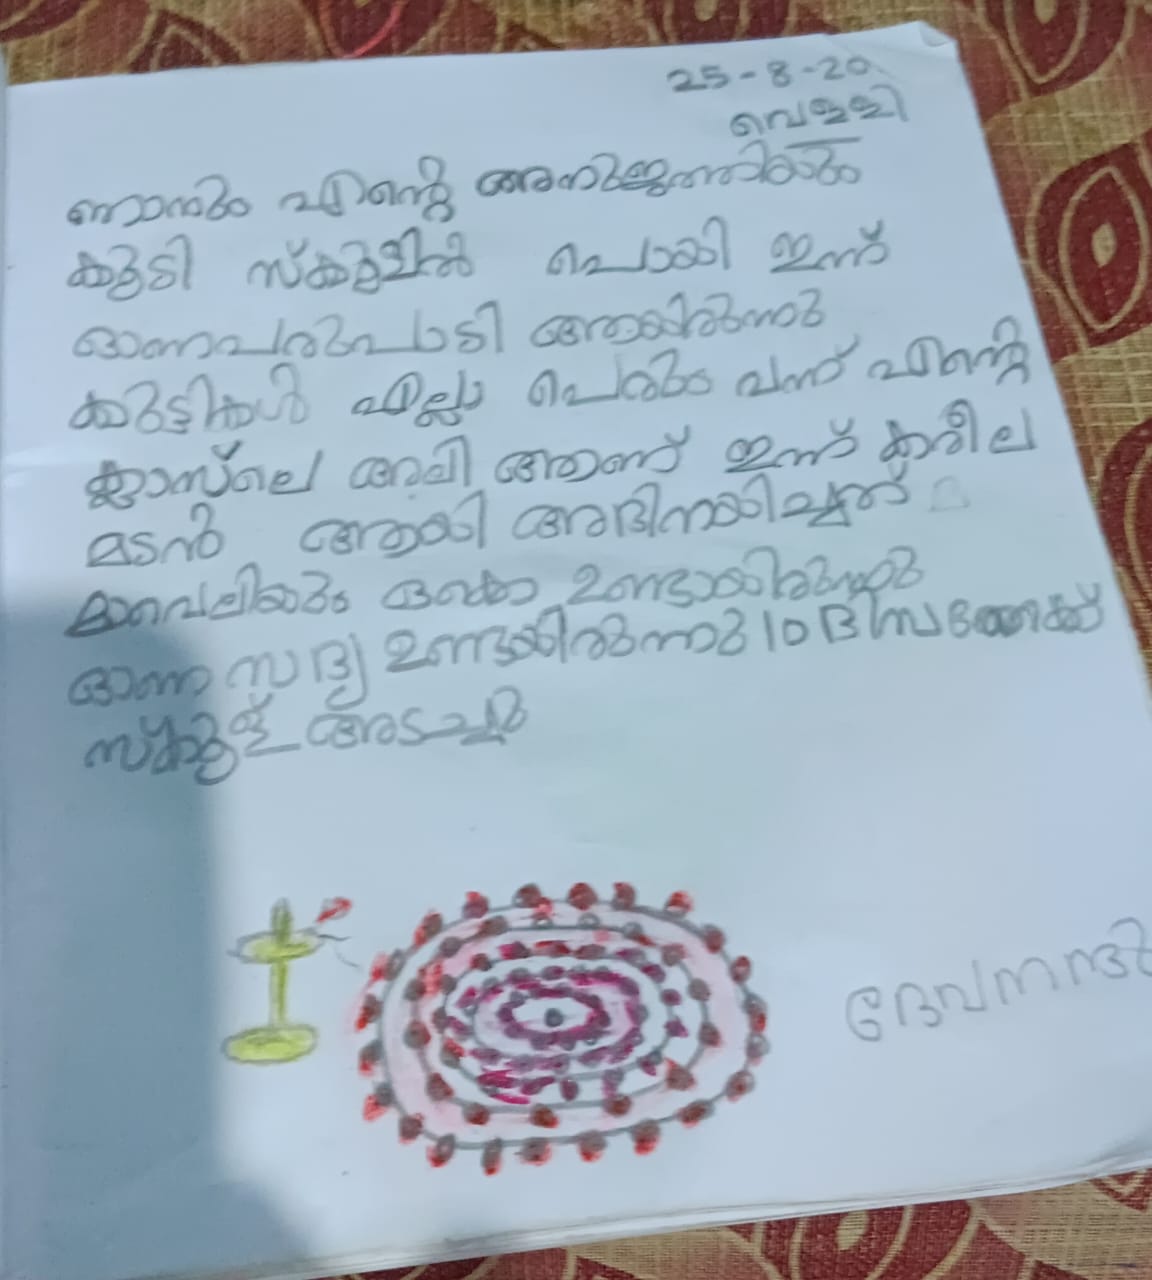 25-8-20
വെള്ളി
ഞാനും എന്റെ അനുജത്തിയും
കൂടി സ്കൂളിൽ പൊയി ഇന്ന്
ഓണപരുപാടി ആയിരുന്നു
കുട്ടികൾ എല്ലാ പെരും വന്ന് എന്റെ
ക്ലാസ്ലെ അലി ആണ് ഇന്ന് കരീല
മടൻ ആയി അഭിനയിച്ചത്
മാവെലിയും ഒക്കെ ഉണ്ടായിരുന്നു
ഓണ സദ്യ ഉണ്ടായിരുന്നു 10 ദിസ
സ്കൂള് അടച്ചു
ദേവനന്ദ